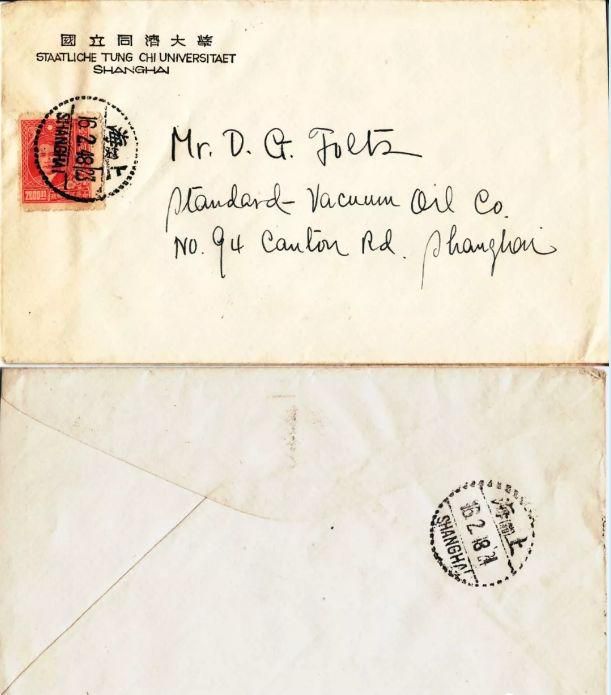 國立同濟大學
STAATLICHE TUNG CHI UNIVERSITAET
SHANGHAI
上海
16.2.48
SHANGHAI
Mr. D. G. Foltz
Standard-Vacuum Oil Co.
No. 94 Canton Rd. Shanghai
上海
16.2.48
SHANGHAI